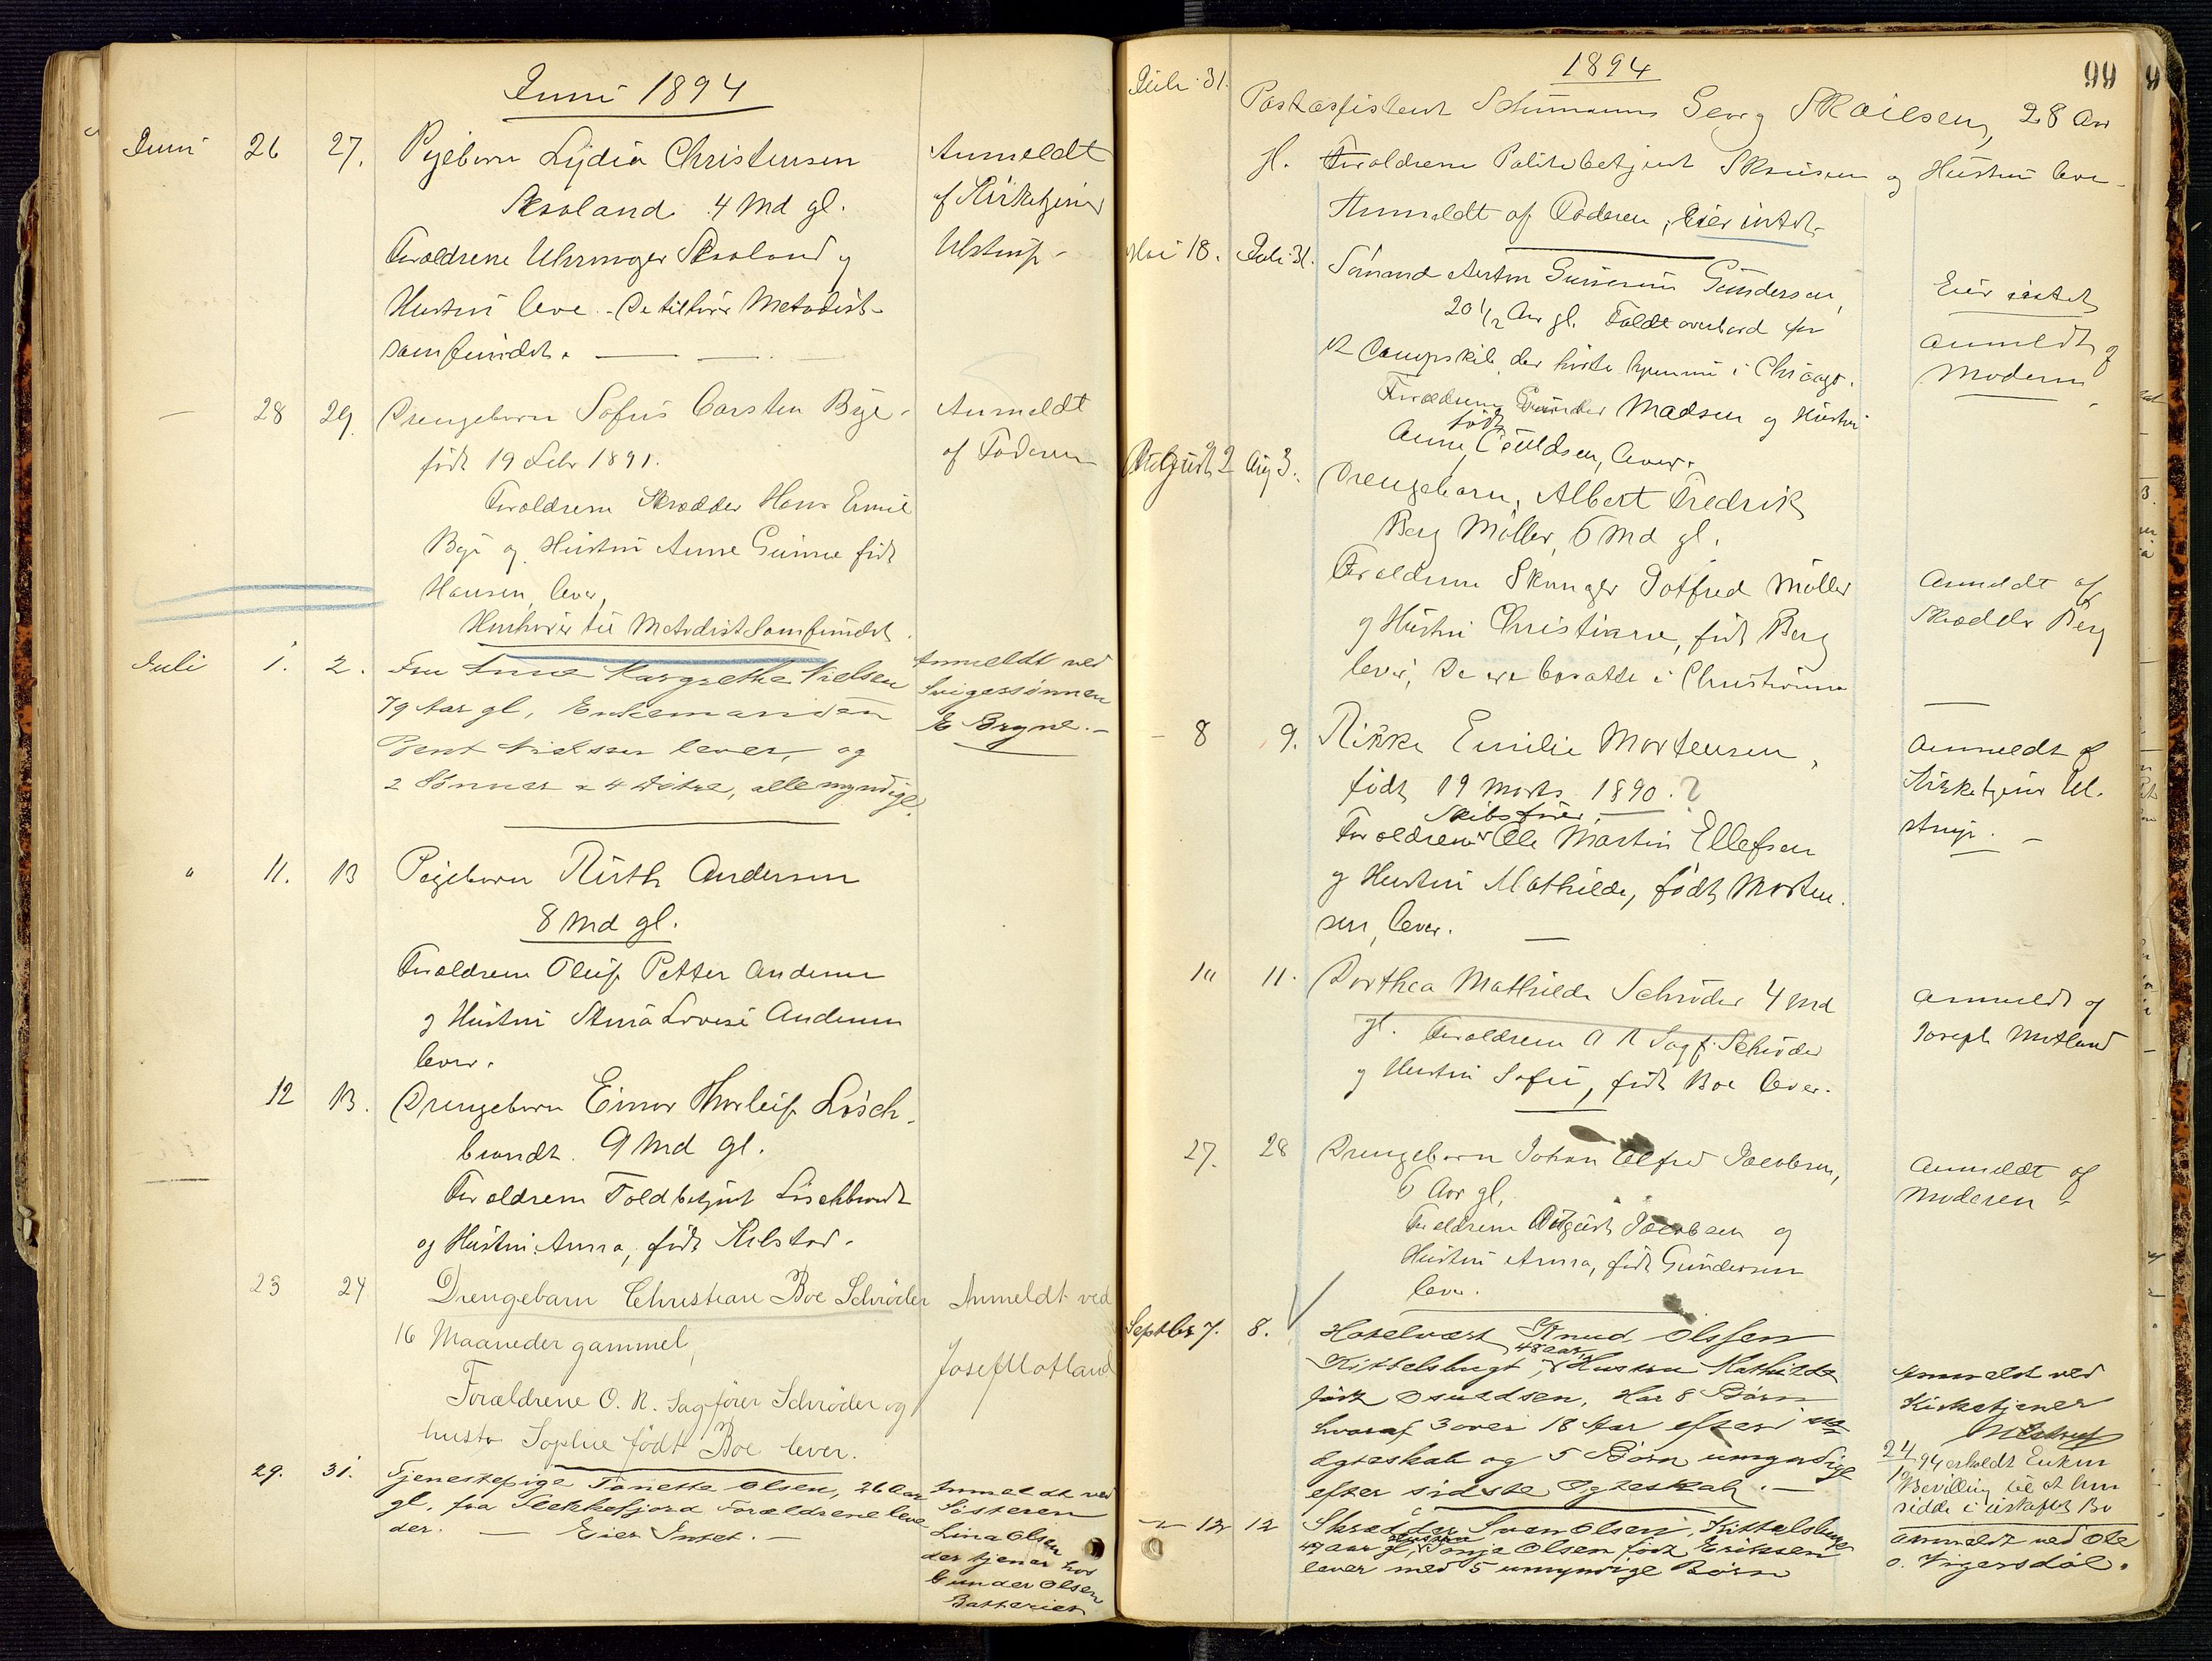 Juni 1894
Juni 26 27. Pigebarn Lydia Christensen
Skoland 4 Md gl.
Forældrene Uhrmager Skoland og
Hustru leve. - De tilhører Metodist-
samfundet.
Anmeldt
af Kirketjener
Ulstrup -
— 28 29. Drengebarn Sofus Carsten Bye -
født 19 Febr 1891.
Forældrene Skrædder Hans Emil
Bye og Hustru Anne Gurine født
Hansen, lever,
Henhører til Metodist Samfundet.
Anmeldt
af Faderen
Juli 1. 2. Fru Anne Margrethe Nielsen
79 Aar gl, Enkemanden
Bent Nielsen lever, og
2 Sønner & 4 Døtre, alle myndige.
Anmeldt ved
Svigersønnen
E Bryne. -
" 11. 13 Pigebarn Ruth Andersen
8 Md gl.
Forældrene Oluf Petter Andersen
og Hustru Lovise Andersen
lever.
12 13. Drengebarn Einar Thorleif Lösch-
brandt. 9 Md gl.
Forældrene Toldbetjent Löschbrandt
og Hustru Anna, født Kilstad.
23 24 Drengebarn Christian Boe Schrøder
16 Maaneder gammel,
Forældrene O. R. Sagfører Schrøder og
hustr Sophie født Boe lever.
Anmeldt ved
Josef Motland
29. 31. Tjenestepige Tonette Olsen, 26 Aar
gl. fra Flekkefjord Forældrene leve
der. — Eier Intet. -
Anmeldt ved
Søsteren
Lina Olsen
der tjener hos
Gunder Olsen
Batteriet
1894
99
Juli 31. Postasistent Schumann Georg Skoilsen, 28 Aar
gl. Forældrene Politibetjent og Hustru leve -
Anmeldt af Faderen, Eier intet -
Mai 18. Juli 31. Sømand Anton Gundersen,
20 1/2 Aar gl. Faldt overbord fra
et Dampskib, der hørte hjemme i Chicago.
Forældrene Gunder Madsen og Hustru
født
Anne, lever.
Eier intet
anmeldt af
Moderen
August 2 Aug 3. Drengebarn, Albert Fredrik
Berg Møller, 6 Md gl.
Forældrene Gotfred Møller
og Hustru Christiane, født Berg
lever, De ere bosatte i Christiania
Anmeldt af
Skrædder Berg
- 8 9. Rikke Emilie Mortensen,
født 19 Marts 1890. ?
Skibsfører
Forældrene Ole Martin Ellefsen
og Hustru Mathilde, født Morten-
sen, lever.
Anmeldt af
Kirketjener Ul-
strup. -
10 11. Dorthea Mathilde Schrøder 4 Md
gl. Forældrene O R Sagf. Schrøder
og Hustru Sofie, født Boe lever.
anmeldt af
Joseph Motland
27. 28 Drengebarn Johan Alfred Jacobsen,
6 Aar gl,
Forældrene August Jacobsen og
Hustru Anna, født Gundersen
lever.
Anmeldt af
Moderen -
Septbr 7. 8. Hotelvært Knud Olssen
48 aar
Kittelsbugt, Hustru Mathilde
født Osuldsen. Har 8 Børn
hvoraf 3 over 18 Aar efter 1ste
Ægteskab og 5 Børn umyndige
efter sidste Ægteskab. -
Anmeldt ved
Kirketjener
Ulstrup
24/9 94 erholdt Enken
Bevilling til at hen
sidde i uskiftet Bo
- 12 12 Skrædder Sven Olsen, Kittelsbugt
Hustru
47 aar gl, Tonja Olsen født Eriksen
lever med 5 umyndige Børn
Anmeldt ved Ole
O. Vigersdal.